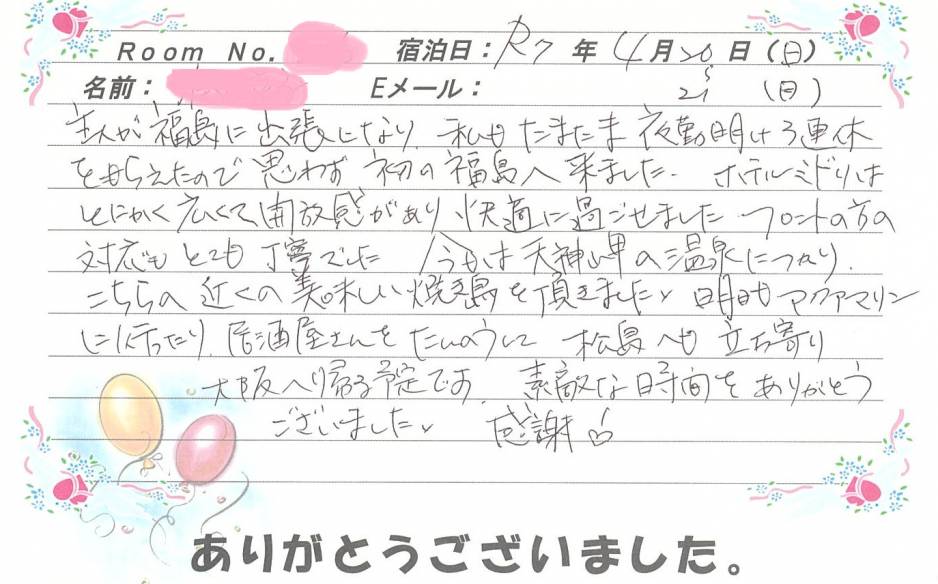 Room No. 宿泊日：R7 年 4月20日（日）
名前： Eメール： 21（月）
主人が福島に出張になり、私もたまたま夜勤明け3連休
をもらえたので思わず初の福島へ来ました。ホテルミドリは
とにかく広くて開放感があり、快適に過ごせました フロントの方の
対応もとても丁寧でした 今日は天神岬の温泉につかり、
こちらの近くの美味しい焼き鳥を頂きました。明日もアクアマリン
に行ったり、居酒屋さんをたんのうして 松島へも立ち寄り
大阪へ帰る予定です。素敵な時間をありがとう
ございました。 感謝
ありがとうございました。